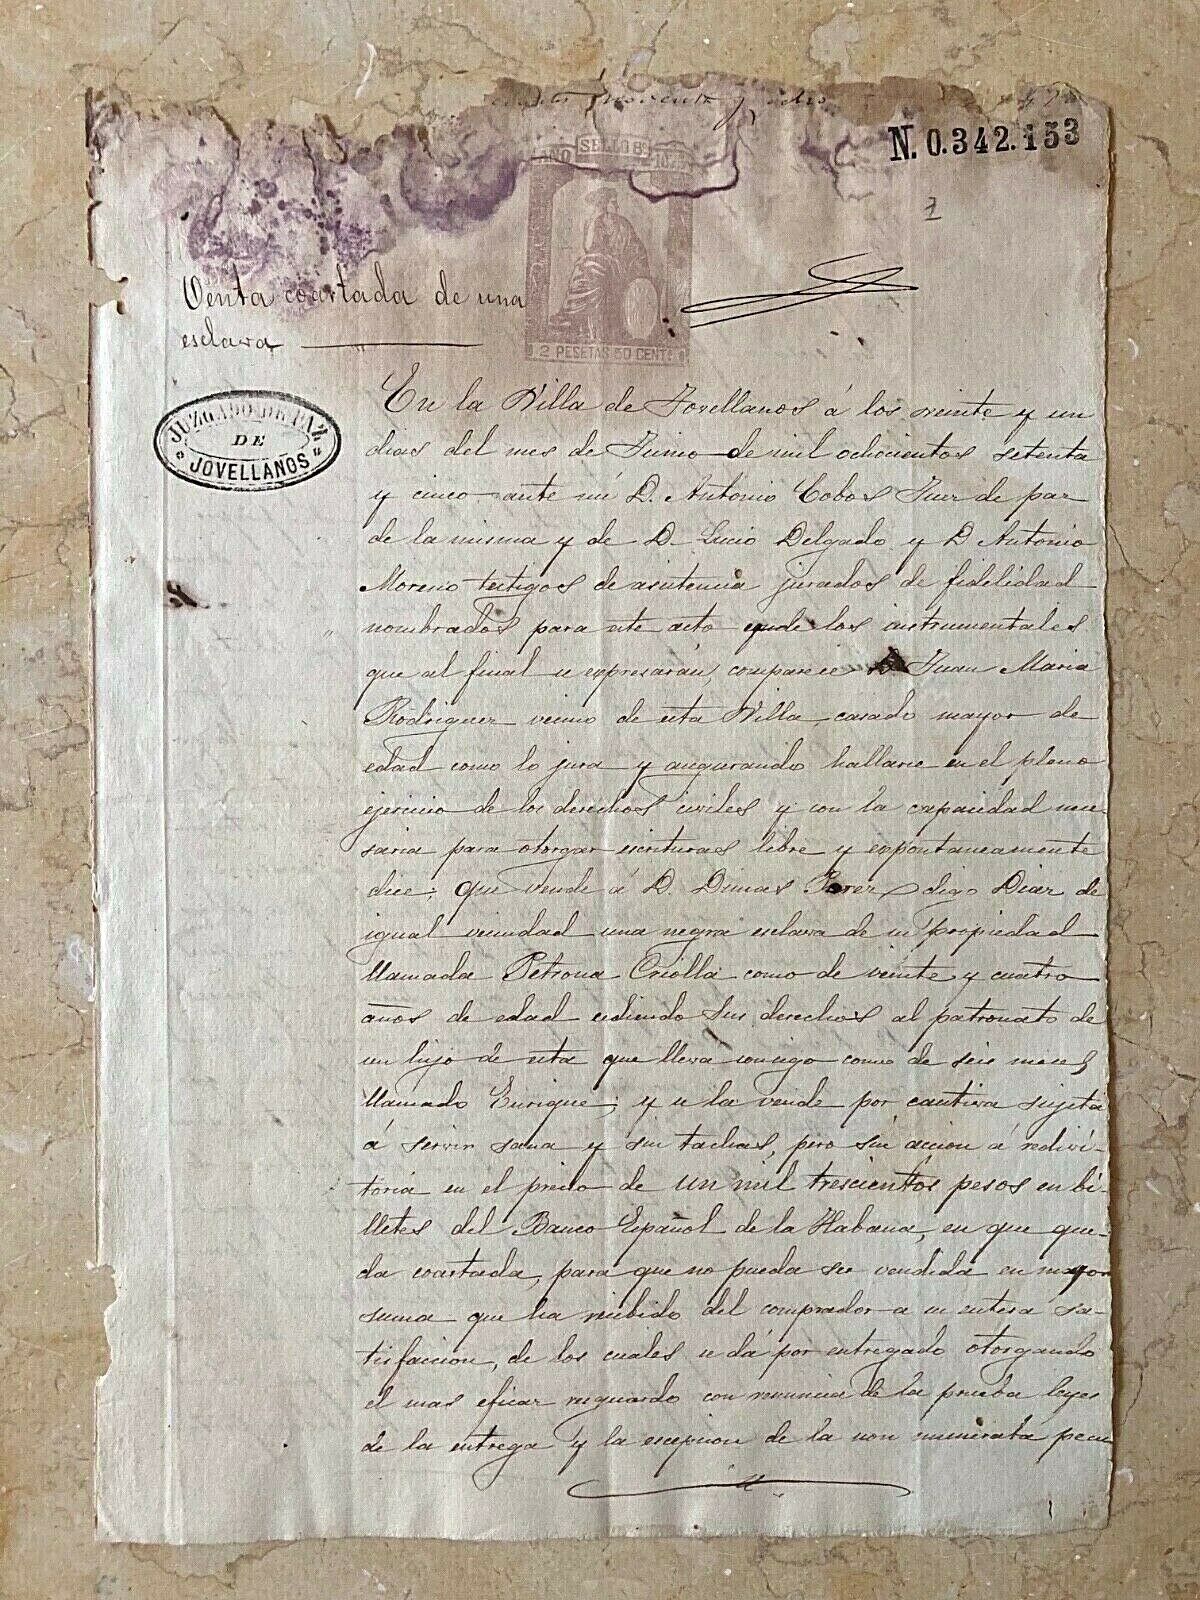 noventa y ocho
N. 0.342.153
SELLO 8º
2 PESETAS 50 CENTS
Venta coartada de una
esclava
JUZGADO DE PAZ
DE
JOVELLANOS
En la Villa de Jovellanos á los veinte y un
dias del mes de Junio de mil ochocientos setenta
y cinco ante mi D. Antonio Cobos Juez de paz
de la misma y de D. Lucio Delgado y D Antonio
Moreno testigos de asistencia jurados de fidelidad
nombrados para este acto y de los instrumentales
que al final se espresarán, comparece D Juan Maria
Rodriguez vecino de esta Villa casado mayor de
edad como lo jura y asegurando hallarse en el pleno
ejercicio de los derechos civiles y con la capacidad nece-
saria para otorgar escrituras libre y espontaneamente
dice; que vende á D. Dimas Perez digo Diaz de
igual vecindad una negra esclava de su propiedad
llamada Petrona Criolla como de veinte y cuatro
años de edad cediendo sus derechos al patronato de
un hijo de esta que lleva consigo como de seis meses
llamado Enrique; y se la vende por cautiva sujeta
á servir sana y sin tachas, pero sin accion á redivi-
toria en el precio de un mil trescientos pesos en bi-
lletes del Banco Español de la Habana, en que que-
da coartada, para que no pueda ser vendida en mayor
suma que ha recibido del comprador a su entera sa-
tisfaccion, de los cuales se dá por entregado otorgando
el mas eficaz resguardo con renuncia de la prueba leyes
de la entrega y la escepcion de la non numerata pecu